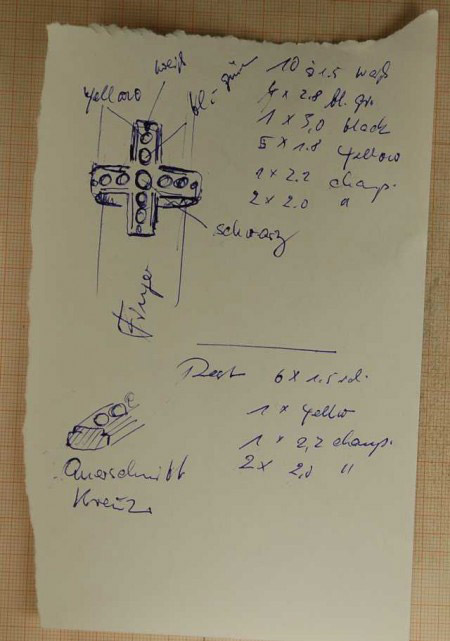 weiß
yellow
bl.-grün
10 à 1.5 weiß
4 x 2.8 bl. gr.
1 x 3,0 black
5 x 1.8 yellow
1 x 2.2 champ.
2 x 2.0 "
schwarz
Finger
Rest 6 x 1.5 id.
1 x yellow
1 x 2,2 champ.
2 x 2,0 "
Querschnitt
Kreuz